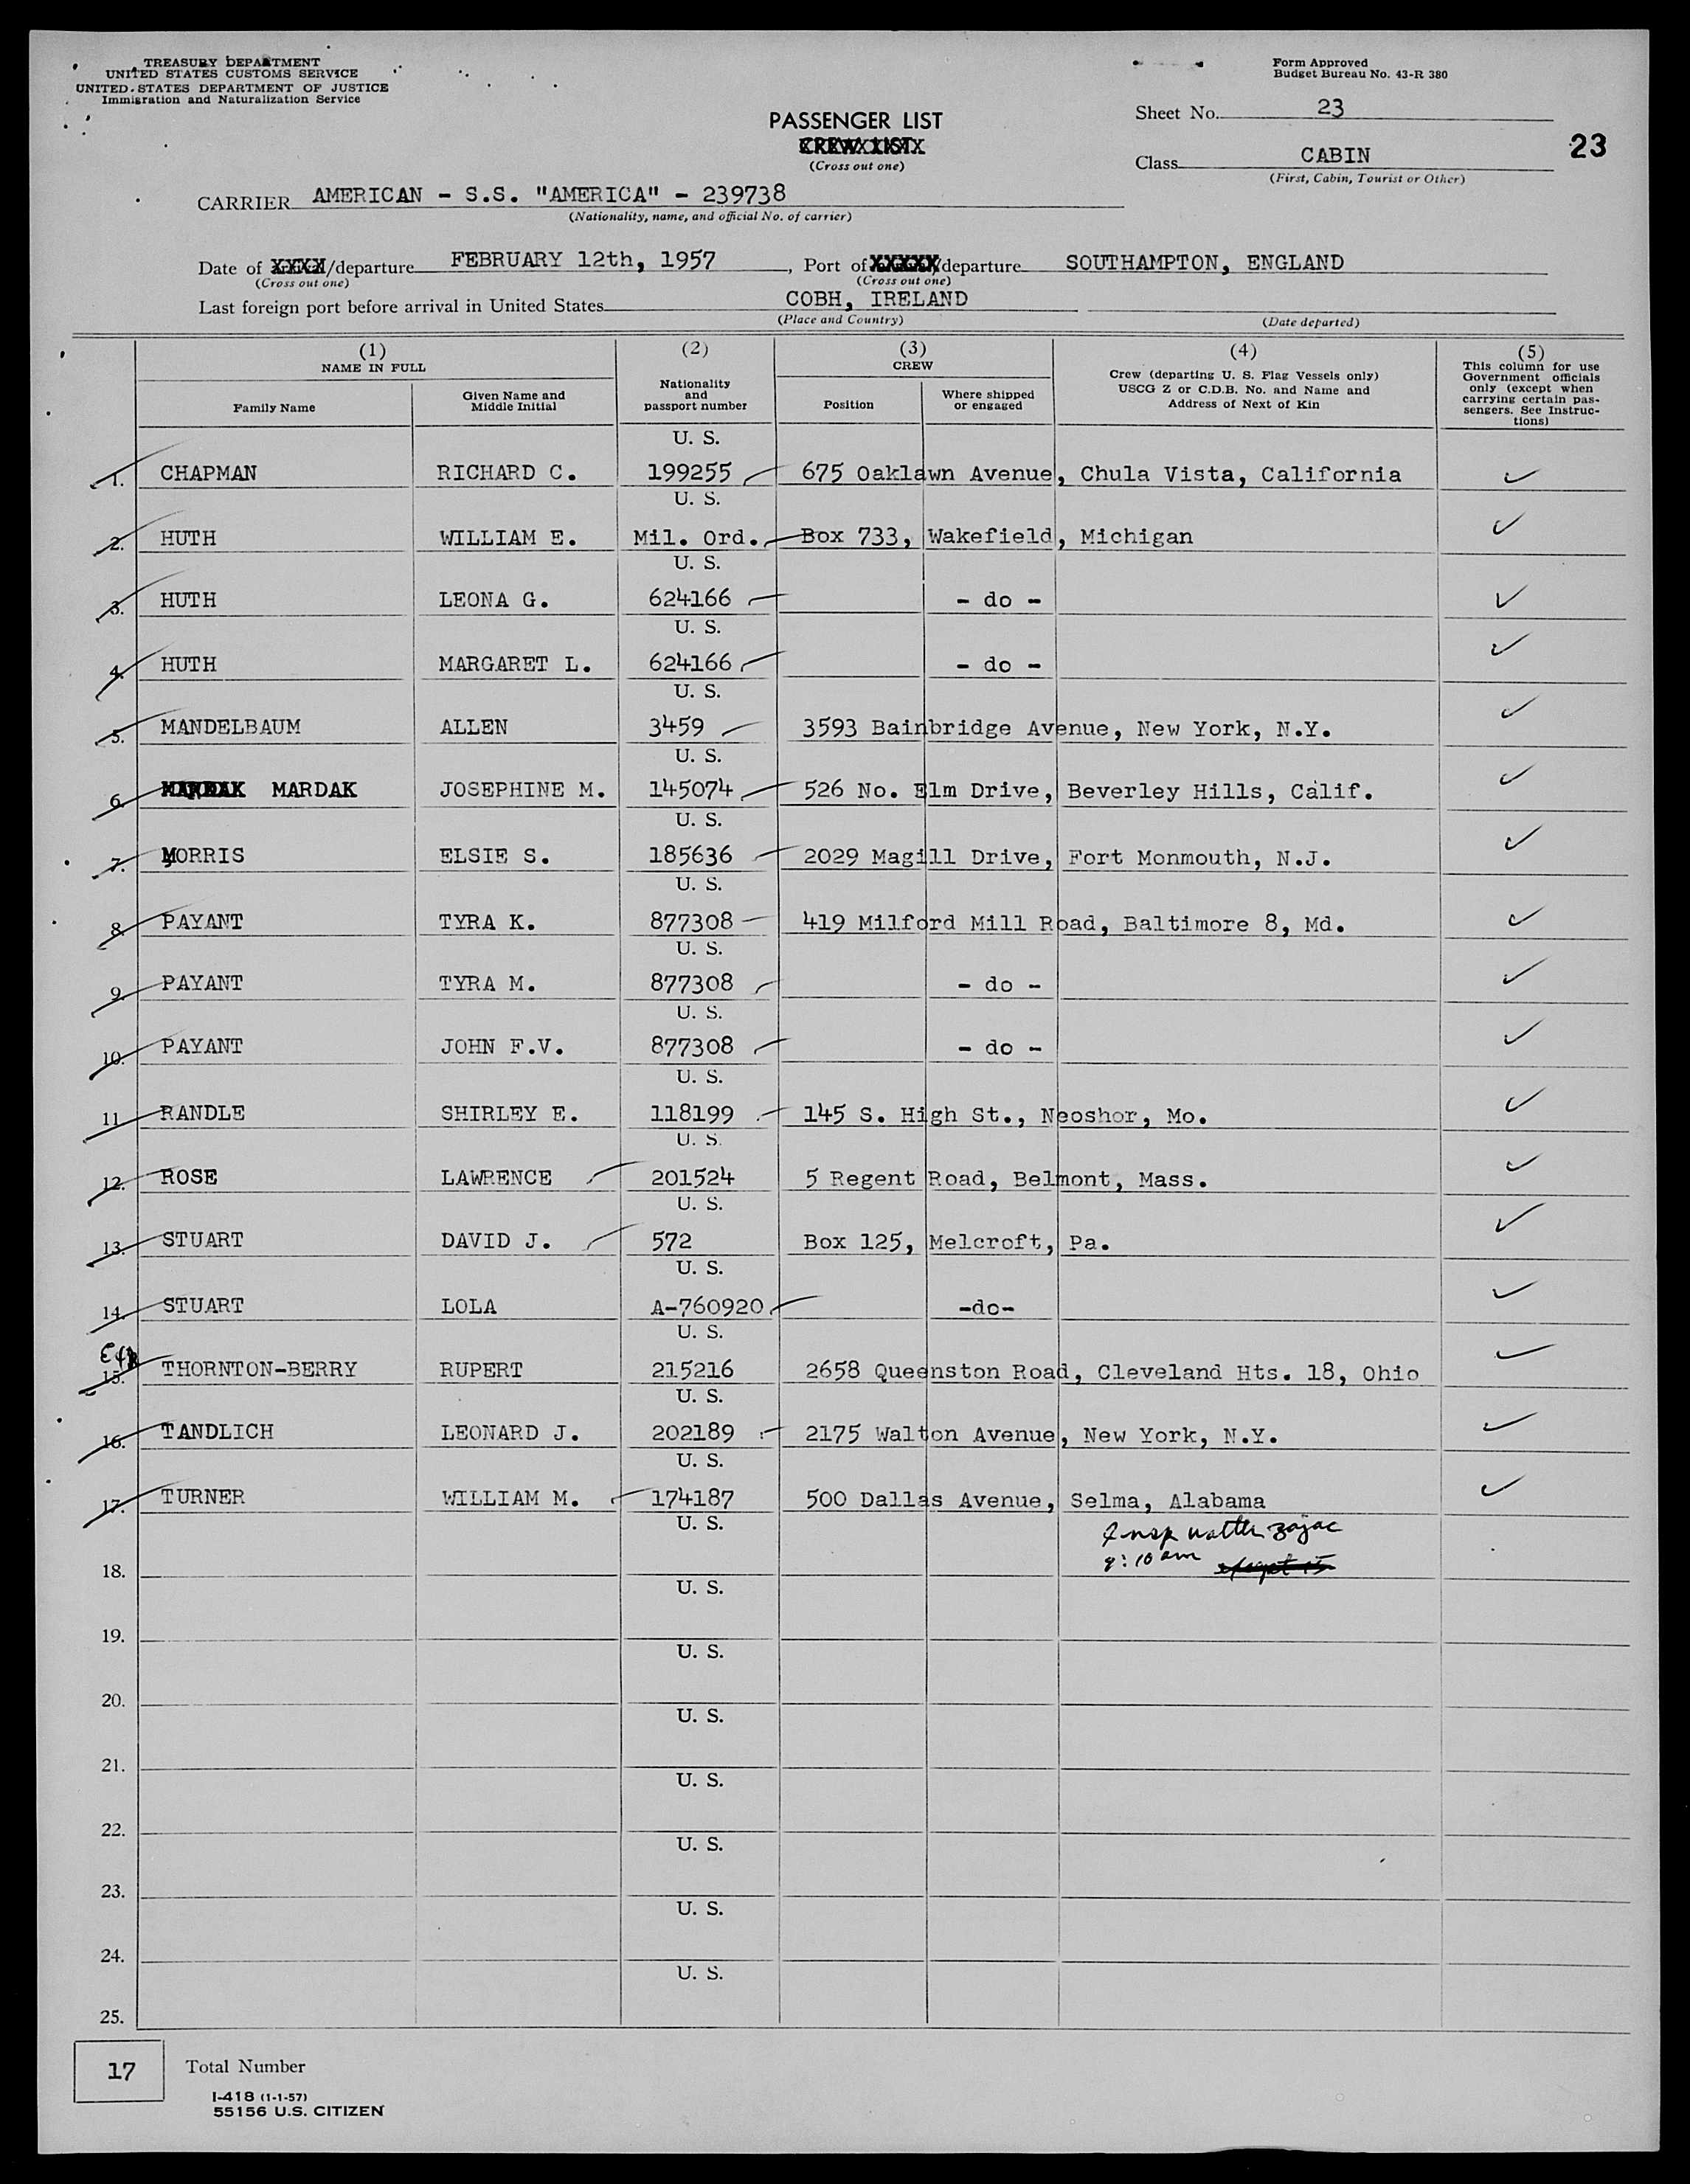 TREASURY DEPARTMENT
UNITED STATES CUSTOMS SERVICE
UNITED STATES DEPARTMENT OF JUSTICE
Immigration and Naturalization Service
Form Approved
Budget Bureau No. 43-R 380
PASSENGER LIST
CREW LIST
(Cross out one)
Sheet No. 23
23
Class CABIN
(First, Cabin, Tourist or Other)
CARRIER AMERICAN - S.S. "AMERICA" - 239738
(Nationality, name, and official No. of carrier)
Date of XXXX/departure FEBRUARY 12th, 1957, Port of XXXXX/departure SOUTHAMPTON, ENGLAND
(Cross out one) (Cross out one)
Last foreign port before arrival in United States COBH, IRELAND
(Place and Country) (Date departed)
(1) (2) (3) (4) (5)
NAME IN FULL
Family Name
Given Name and Middle Initial
Nationality and passport number
CREW
Position
Where shipped or engaged
Crew (departing U. S. Flag Vessels only) USCG Z or C.D.B. No. and Name and Address of Next of Kin
This column for use Government officials only (except when carrying certain passengers. See Instructions)
U. S.
1. CHAPMAN RICHARD C. 199255 675 Oaklawn Avenue, Chula Vista, California
U. S.
2. HUTH WILLIAM E. Mil. Ord. Box 733, Wakefield, Michigan
U. S.
3. HUTH LEONA G. 624166 - do -
U. S.
4. HUTH MARGARET L. 624166 - do -
U. S.
5. MANDELBAUM ALLEN 3459 3593 Bainbridge Avenue, New York, N.Y.
U. S.
6. MARDAK JOSEPHINE M. 145074 526 No. Elm Drive, Beverley Hills, Calif.
U. S.
7. MORRIS ELSIE S. 185636 2029 Magill Drive, Fort Monmouth, N.J.
U. S.
8. PAYANT TYRA K. 877308 419 Milford Mill Road, Baltimore 8, Md.
U. S.
9. PAYANT TYRA M. 877308 - do -
U. S.
10. PAYANT JOHN F.V. 877308 - do -
U. S.
11 RANDLE SHIRLEY E. 118199 145 S. High St., Neoshor, Mo.
U. S.
12. ROSE LAWRENCE 201524 5 Regent Road, Belmont, Mass.
U. S.
13. STUART DAVID J. 572 Box 125, Melcroft, Pa.
U. S.
14. STUART LOLA A-760920 -do-
U. S.
15. THORNTON-BERRY RUPERT 215216 2658 Queenston Road, Cleveland Hts. 18, Ohio
U. S.
16. TANDLICH LEONARD J. 202189 2175 Walton Avenue, New York, N.Y.
U. S.
17. TURNER WILLIAM M. 174187 500 Dallas Avenue, Selma, Alabama
U. S.
Insp Walter Zajac
18.
U. S.
19.
U. S.
20.
U. S.
21.
U. S.
22.
U. S.
23.
U. S.
24.
U. S.
25.
17 Total Number
I-418 (1-1-57)
55156 U.S. CITIZEN